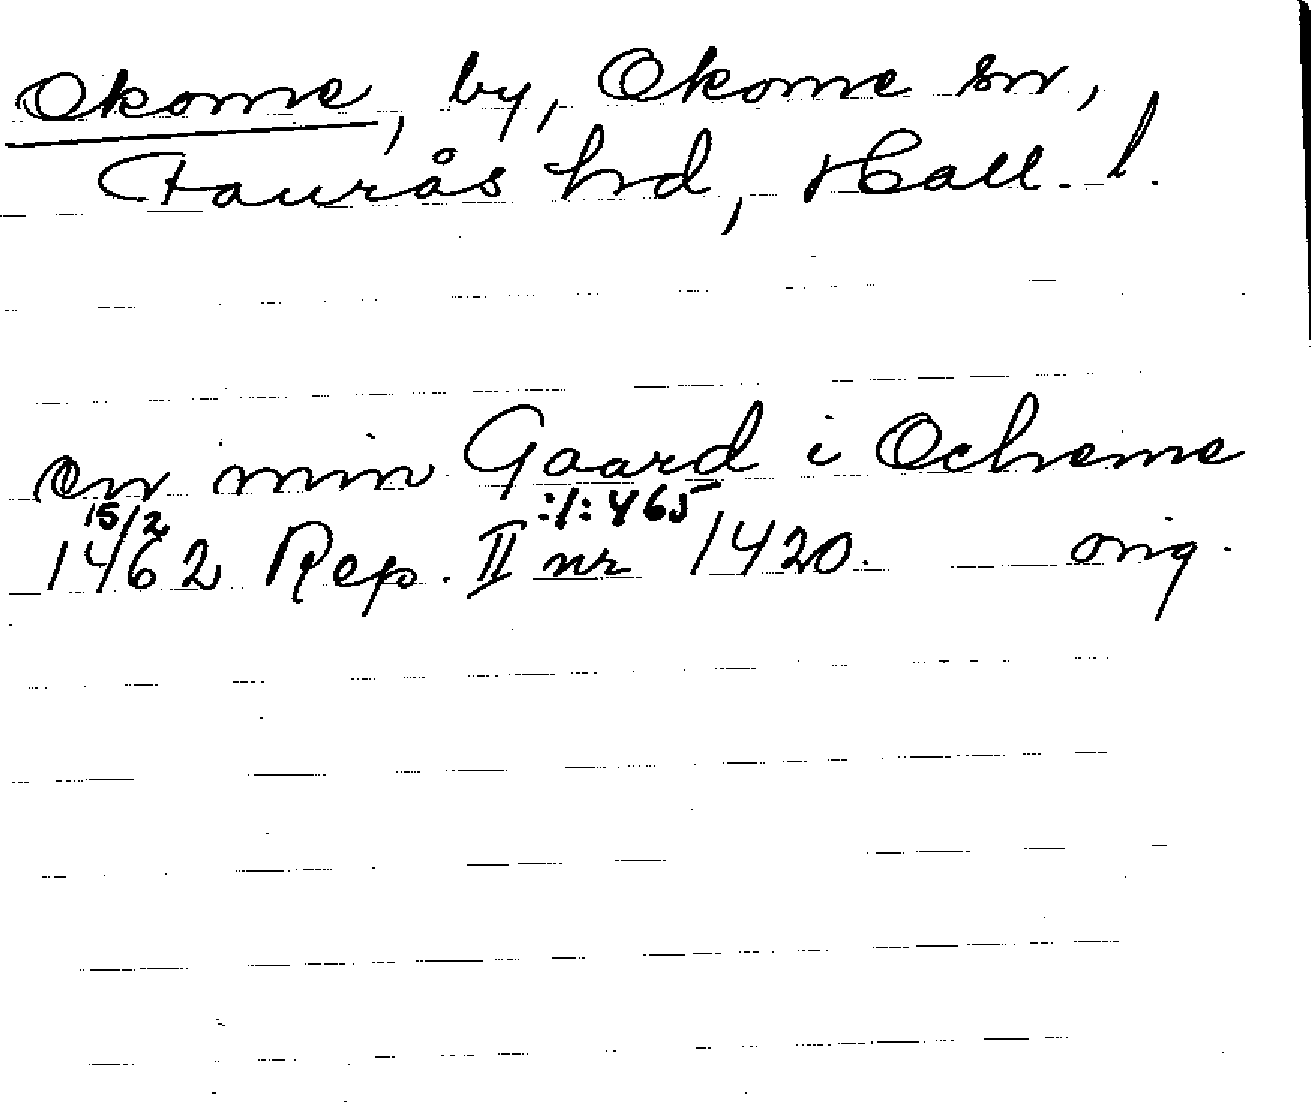 Okome, by, Okome sn,
Faurås hd, Hall. l.
en min Gaard i Ocheme
15/2 :/: 465
1462 Rep. II nr 1420. orig.